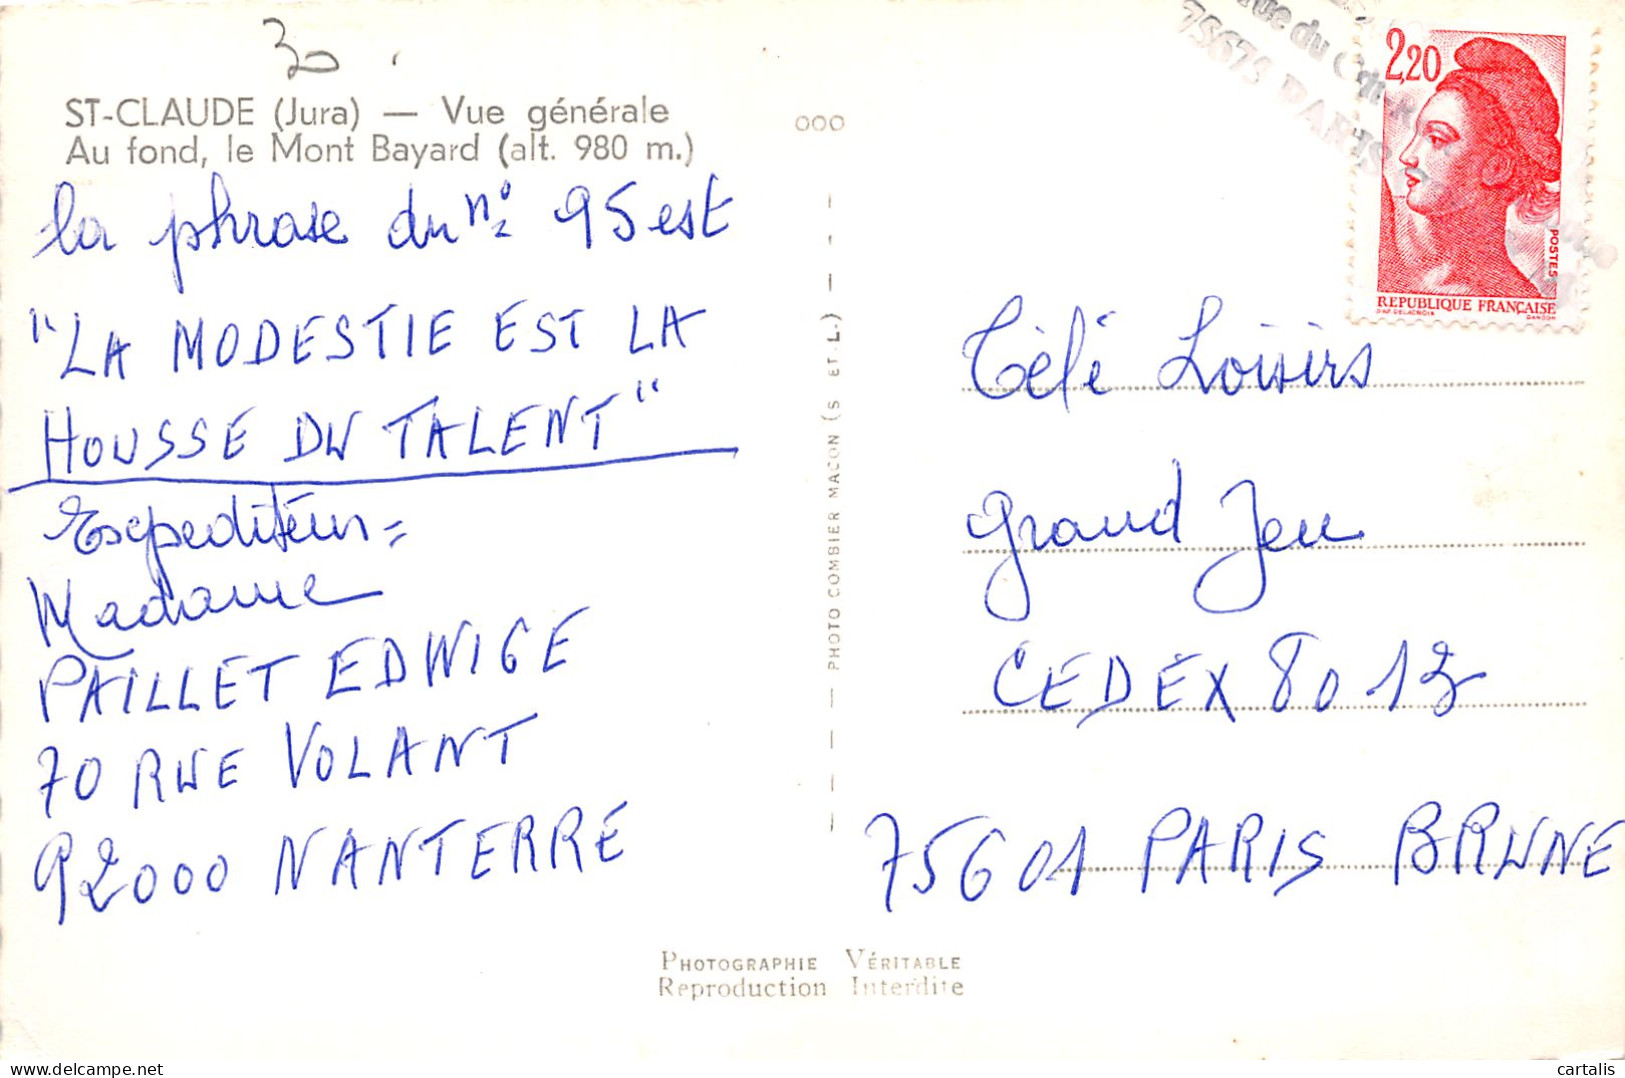 30
ST-CLAUDE (Jura) — Vue générale
Au fond, le Mont Bayard (alt. 980 m.)
000
la phrase du n° 95 est
"LA MODESTIE EST LA
HOUSSE DU TALENT"
Expediteur=
Madame
PAILLET EDWIGE
70 RUE VOLANT
92000 NANTERRE
— PHOTO COMBIER MACON (S ET L.)
rue du
75675 PARIS
2,20
POSTES
REPUBLIQUE FRANÇAISE
D'AP. DELACROIX
GANDON
Télé Loisirs
Grand Jeu
CEDEX 8013
75601 PARIS BRUNE
PHOTOGRAPHIE VÉRITABLE
Reproduction Interdite
cartalis